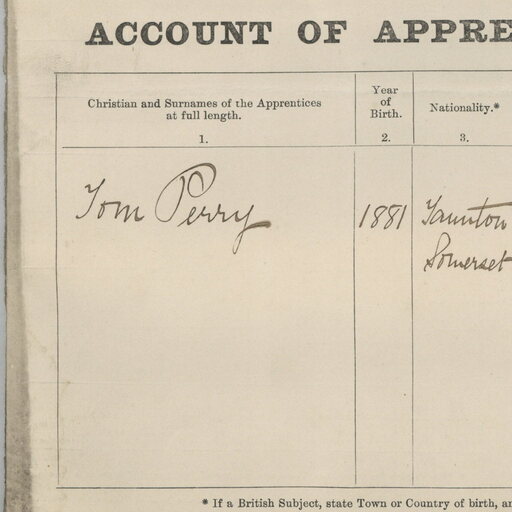 ACCOUNT OF APPRE
Christian and Surnames of the Apprentices
at full length.
1.
Year
of
Birth.
2.
Nationality.*
3.
Tom Perry
1881
Taunton
Somerset
* If a British Subject, state Town or Country of birth, an